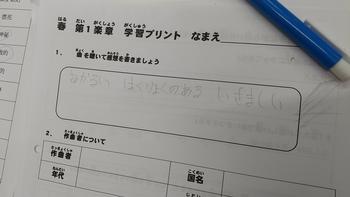 春 第1楽章 学習プリント なまえ
1. 曲を聴いて感想を書きましょう
なかるい はくりょくのある いさましい
2. 作曲者について
作曲者
年代
国名